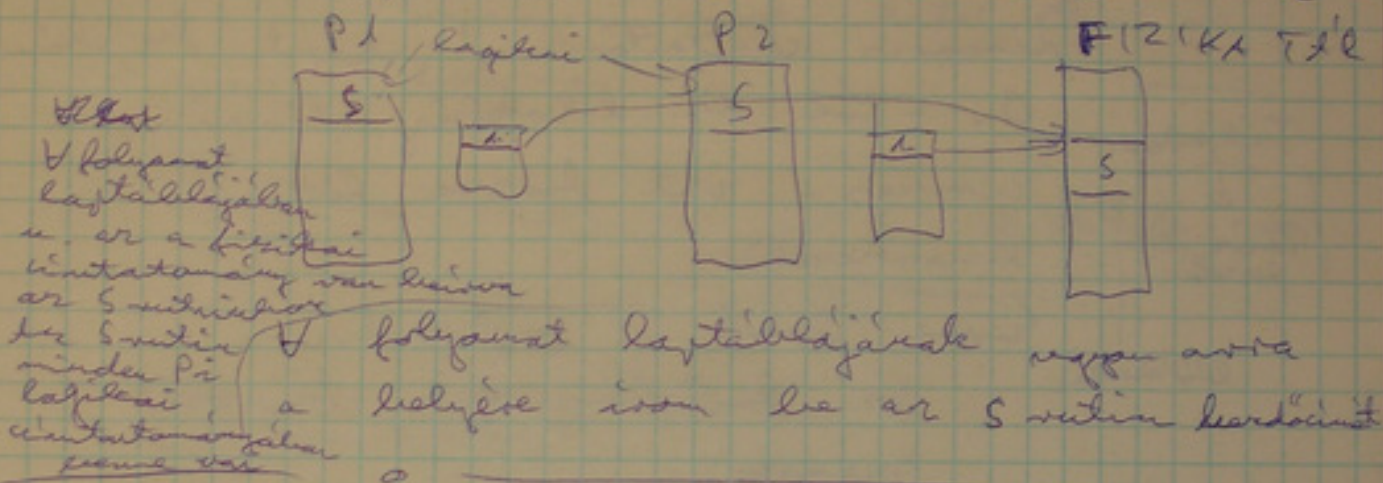 P1 logikai P2 FIZIKAI TÁR
S S S
1. 1.
∀ folyamat
laptáblájában
u. az a fizikai
címtartomány van beírva
az S rutinhoz
az S rutin
minden Pi
logikai
címtartományában
benne van
∀ folyamat laptáblájának ugyan arra
a helyére írom be az S rutin kezdőcímét